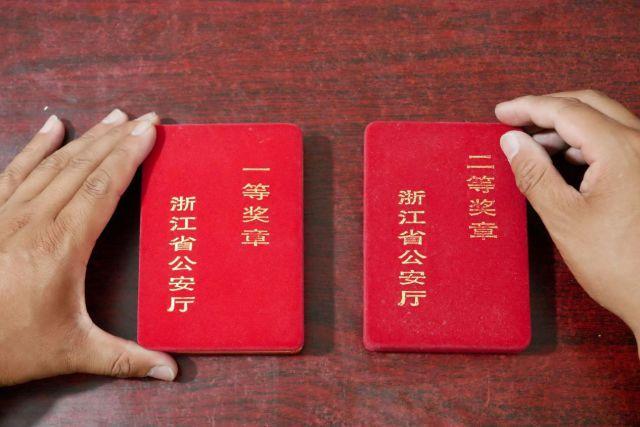 一等奖章
浙江省公安厅
二等奖章
浙江省公安厅